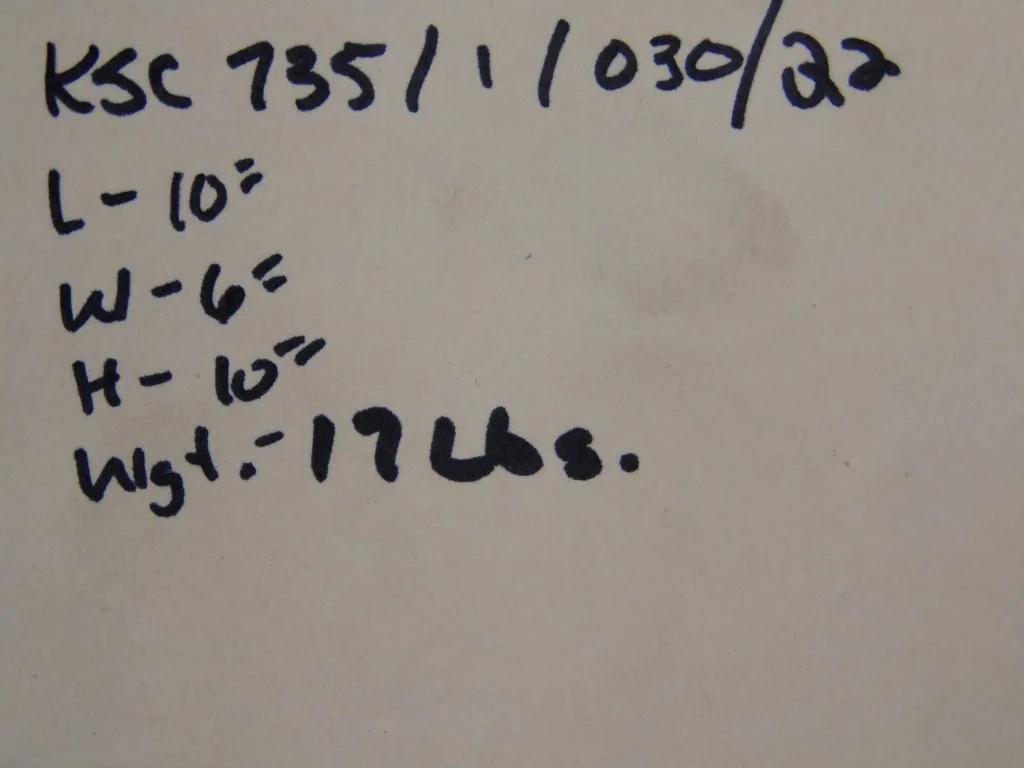 KSC 735/1/030/22
L - 10"
W - 6"
H - 10"
Wgt. - 17 Lbs.